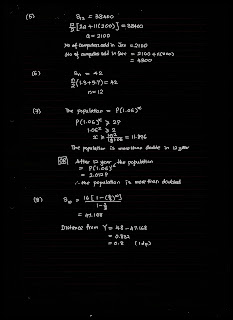 (5) S₁₂ = 33400
12/2 [2a + 11(200)] = 33400
a = 2100
No of computers sold in Jan = 2100
No of computers sold in Dec = 2100 + 11(200)
= 4300
(6) Sₙ = 42
n/2 (1.3 + 5.7) = 42
n = 12
(7) The population = P(1.06)ˣ
P(1.06)ˣ ≥ 2P
1.06ˣ ≥ 2
= 11.896
The population is more than double in 12 year
OR After 12 year the population
= 2.012P
∴ the population is more than doubled
(8)
= 47.168
Distance from Y = 48 - 47.168
= 0.832
= 0.8 (1dp)